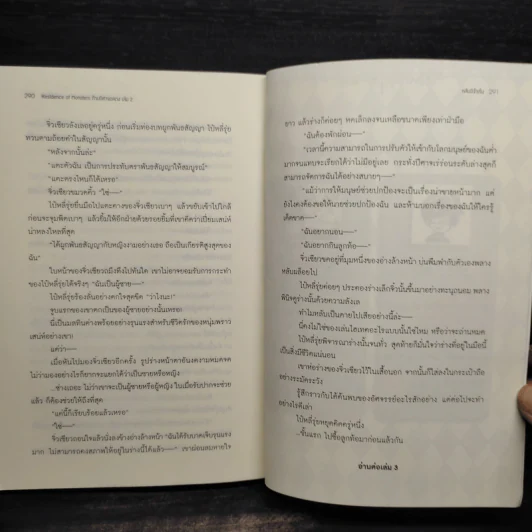 290 Residence of Monsters บ้านปีศาจอลเวง เล่ม 2
จิ่วเชียวลังเลอยู่ครู่หนึ่ง ก่อนเริ่มท่องบทผูกพันธสัญญา ไป๋หลี่รุ่ย
ทวนตามถ้อยคำในสัญญานั้น
“หลังจากนั้นล่ะ”
“แตะหัวฉัน เป็นการประทับตราพันธสัญญาให้สมบูรณ์”
“แตะตรงไหนก็ได้เหรอ”
จิ่วเชียวขมวดคิ้ว “ใช่—”
ไป๋หลี่รุ่ยยื่นมือไปแตะคางของจิ่วเชียวเบาๆ แล้วขยับเข้าไปใกล้
ก่อนจะจุมพิตเบาๆ แล้วยิ้มให้อีกฝ่ายด้วยรอยยิ้มที่เขาคิดว่าเปี่ยมเสน่ห์
น่าหลงใหลที่สุด
“ได้ผูกพันธสัญญากับหญิงงามอย่างเธอ ถือเป็นเกียรติสูงสุดของ
ฉัน”
ใบหน้าของจิ่วเชียวถมึงตึงไปทันใด เขาไม่อาจยอมรับการกระทำ
ของไป๋หลี่รุ่ยได้จริงๆ “ฉันเป็นผู้ชาย—”
ไป๋หลี่รุ่ยร้องลั่นอย่างตกใจสุดขีด “ว่าไงนะ!”
รูปแรกของเขาตกเป็นของผู้ชายอย่างนั้นเหรอ!
นี่เป็นมลทินด่างพร้อยอย่างรุนแรงสำหรับชีวิตรักของหนุ่มพราว
เสน่ห์อย่างเขา!
แต่ว่า—
เมื่อหันไปมองจิ่วเชียวอีกครั้ง รูปร่างหน้าตาอันงดงามหมดจด
ไม่ว่ามองอย่างไรก็ยากจะแยกได้ว่าเป็นชายหรือหญิง
...ช่างเถอะ ไม่ว่าเขาจะเป็นผู้ชายหรือผู้หญิง ในเมื่อรับปากจะช่วย
แล้ว ก็ต้องช่วยให้ถึงที่สุด
“แค่นี้ก็เรียบร้อยแล้วเหรอ”
“ใช่—”
จิ่วเชียวถอนใจแล้วนั่งลงข้างล่างข้างหน้า “ฉันได้รับบาดเจ็บรุนแรง
มาก ไม่สามารถคงสภาพให้อยู่ในร่างนี้ได้แล้ว—” เขาผ่อนลมหายใจ
291
ยาว แล้วร่างก็ค่อยๆ หดเล็กลงจนเหลือขนาดเพียงเท่าฝ่ามือ
“ฉันต้องพักผ่อน—”
“เวลานี้ความสามารถในการปรับตัวให้เข้ากับโลกมนุษย์ของฉันต่ำ
มากจนแทบจะเรียกได้ว่าไม่มีอยู่เลย กระทั่งปีศาจเร่ร่อนระดับล่างสุดก็
สามารถจัดการฉันได้อย่างสบายๆ—”
“แม้ว่าการให้มนุษย์ช่วยปกป้องจะเป็นเรื่องน่าขายหน้ามาก แต่
ยังไงคงต้องขอให้นายช่วยปกป้องฉัน และห้ามบอกเรื่องของฉันให้ใครรู้
เด็ดขาด—”
“ฉันอยากนอน—”
“ฉันอยากกินลูกท้อ—”
จิ่วเชียวขดอยู่ที่มุมหนึ่งของอ่างล้างหน้า บ่นพึมพำกับตัวเองพลาง
หลับผล็อยไป
ไป๋หลี่รุ่ยค่อยๆ ประคองร่างเล็กจิ๋วนั้นขึ้นมาอย่างทะนุถนอม พลาง
พินิจดูร่างนั้นด้วยความลังเล
ทำไมหลับเป็นตายไปเสียอย่างนี้ล่ะ—
ไป๋หลี่รุ่ยพิจารณาร่างนั้นจนทั่ว สุดท้ายก็มั่นใจว่าร่างที่อยู่ในมือนี้
เป็นสิ่งมีชีวิตแน่นอน
เขาห่อร่างของจิ่วเชียวไว้ในเสื้อนอก จากนั้นก็ใส่ลงในกระเป๋าถือ
อย่างระมัดระวัง
รู้สึกราวกับได้ค้นพบของอัศจรรย์อะไรสักอย่าง แต่ต่อไปจะทำ
อย่างไรดีเล่า
ไป๋หลี่รุ่ยหยุดคิดครู่หนึ่ง
...ขั้นแรก ไปซื้อลูกท้อมาก่อนแล้วกัน
อ่านต่อเล่ม 3